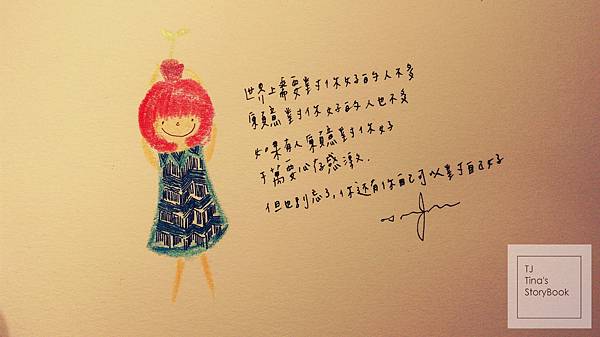 世界上需要對你好的人不多
願意對你好的人也不多
如果有人願意對你好
千萬要心存感激.
但也別忘了,你還有你自己可以對自己好
TJ
Tina's
StoryBook